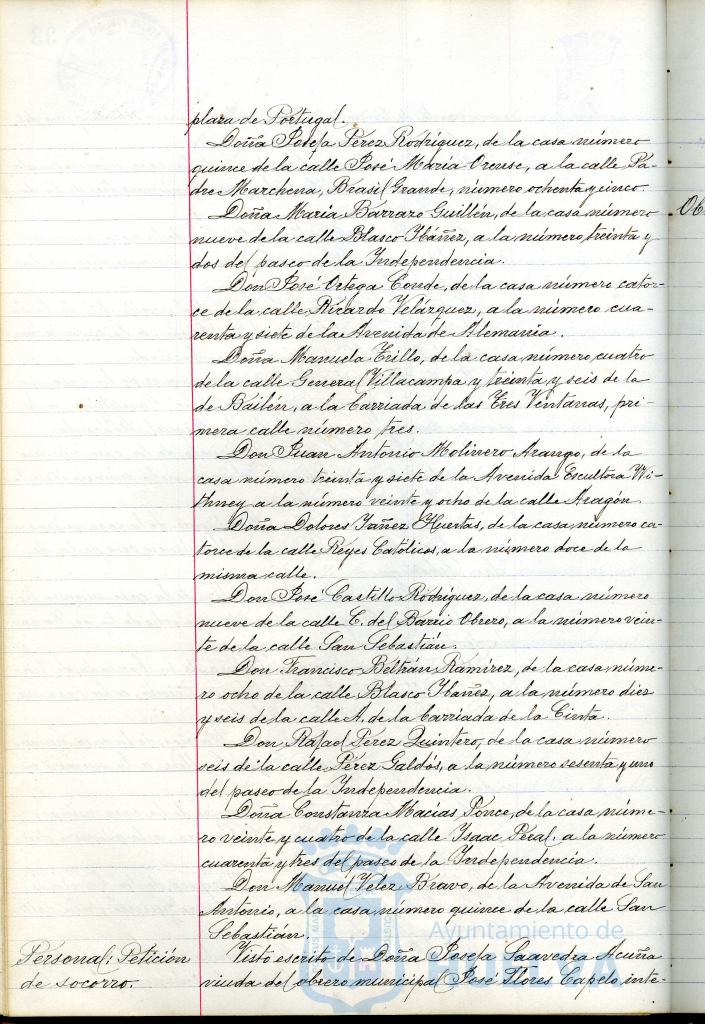 plaza de Portugal.
Doña Josefa Pérez Rodríguez, de la casa número
quince de la calle José María Orense, a la calle Pa-
dre Marchena, Brasil Grande, número ochenta y cinco
Doña Maria Barrazo Guillén, de la casa número
nueve de la calle Blasco Ibáñez, a la número treinta y
dos del paseo de la Independencia.
Don José Ortega Conde, de la casa número cator-
ce de la calle Ricardo Velázquez, a la número cua-
renta y siete de la Avenida de Alemania.
Doña Manuela Trillo, de la casa número cuatro
de la calle General Villacampa y treinta y seis de la
de Bailén, a la barriada de las Tres Ventanas, pri
mera calle número tres.
Don Juan Antonio Molinero Arango, de la
casa número treinta y siete de la Avenida Escultora Wi-
thney a la número veinte y ocho de la calle Aragón
Doña Dolores Yañez Huertas, de la casa número ca-
torce de la calle Reyes Católicos, a la número doce de la
misma calle.
Don José Castillo Rodríguez, de la casa número
nueve de la calle C. del Barrio Obrero, a la número vein-
te de la calle San Sebastián.
Don Francisco Beltrán Ramírez, de la casa núme-
ro ocho de la calle Blasco Ibañez, a la número diez
y seis de la calle A. de la barriada de la Cinta.
Don Rafael Pérez Quintero, de la casa número
seis de la calle Pérez Galdós, a la número sesenta y uno
del paseo de la Independencia.
Doña Constanza Macías Ponce, de la casa núme-
ro veinte y cuatro de la calle Isaac Peral, a la número
cuarenta y tres del paseo de la Independencia.
Don Manuel Velez Bravo, de la Avenida de San
Antonio, a la casa número quince de la calle San
Sebastián.
Personal: Petición
de socorro.
Visto escrito de Doña Josefa Saavedra Acuña
viuda del obrero municipal José Flores Capelo inte-
Ayuntamiento de
HUELVA